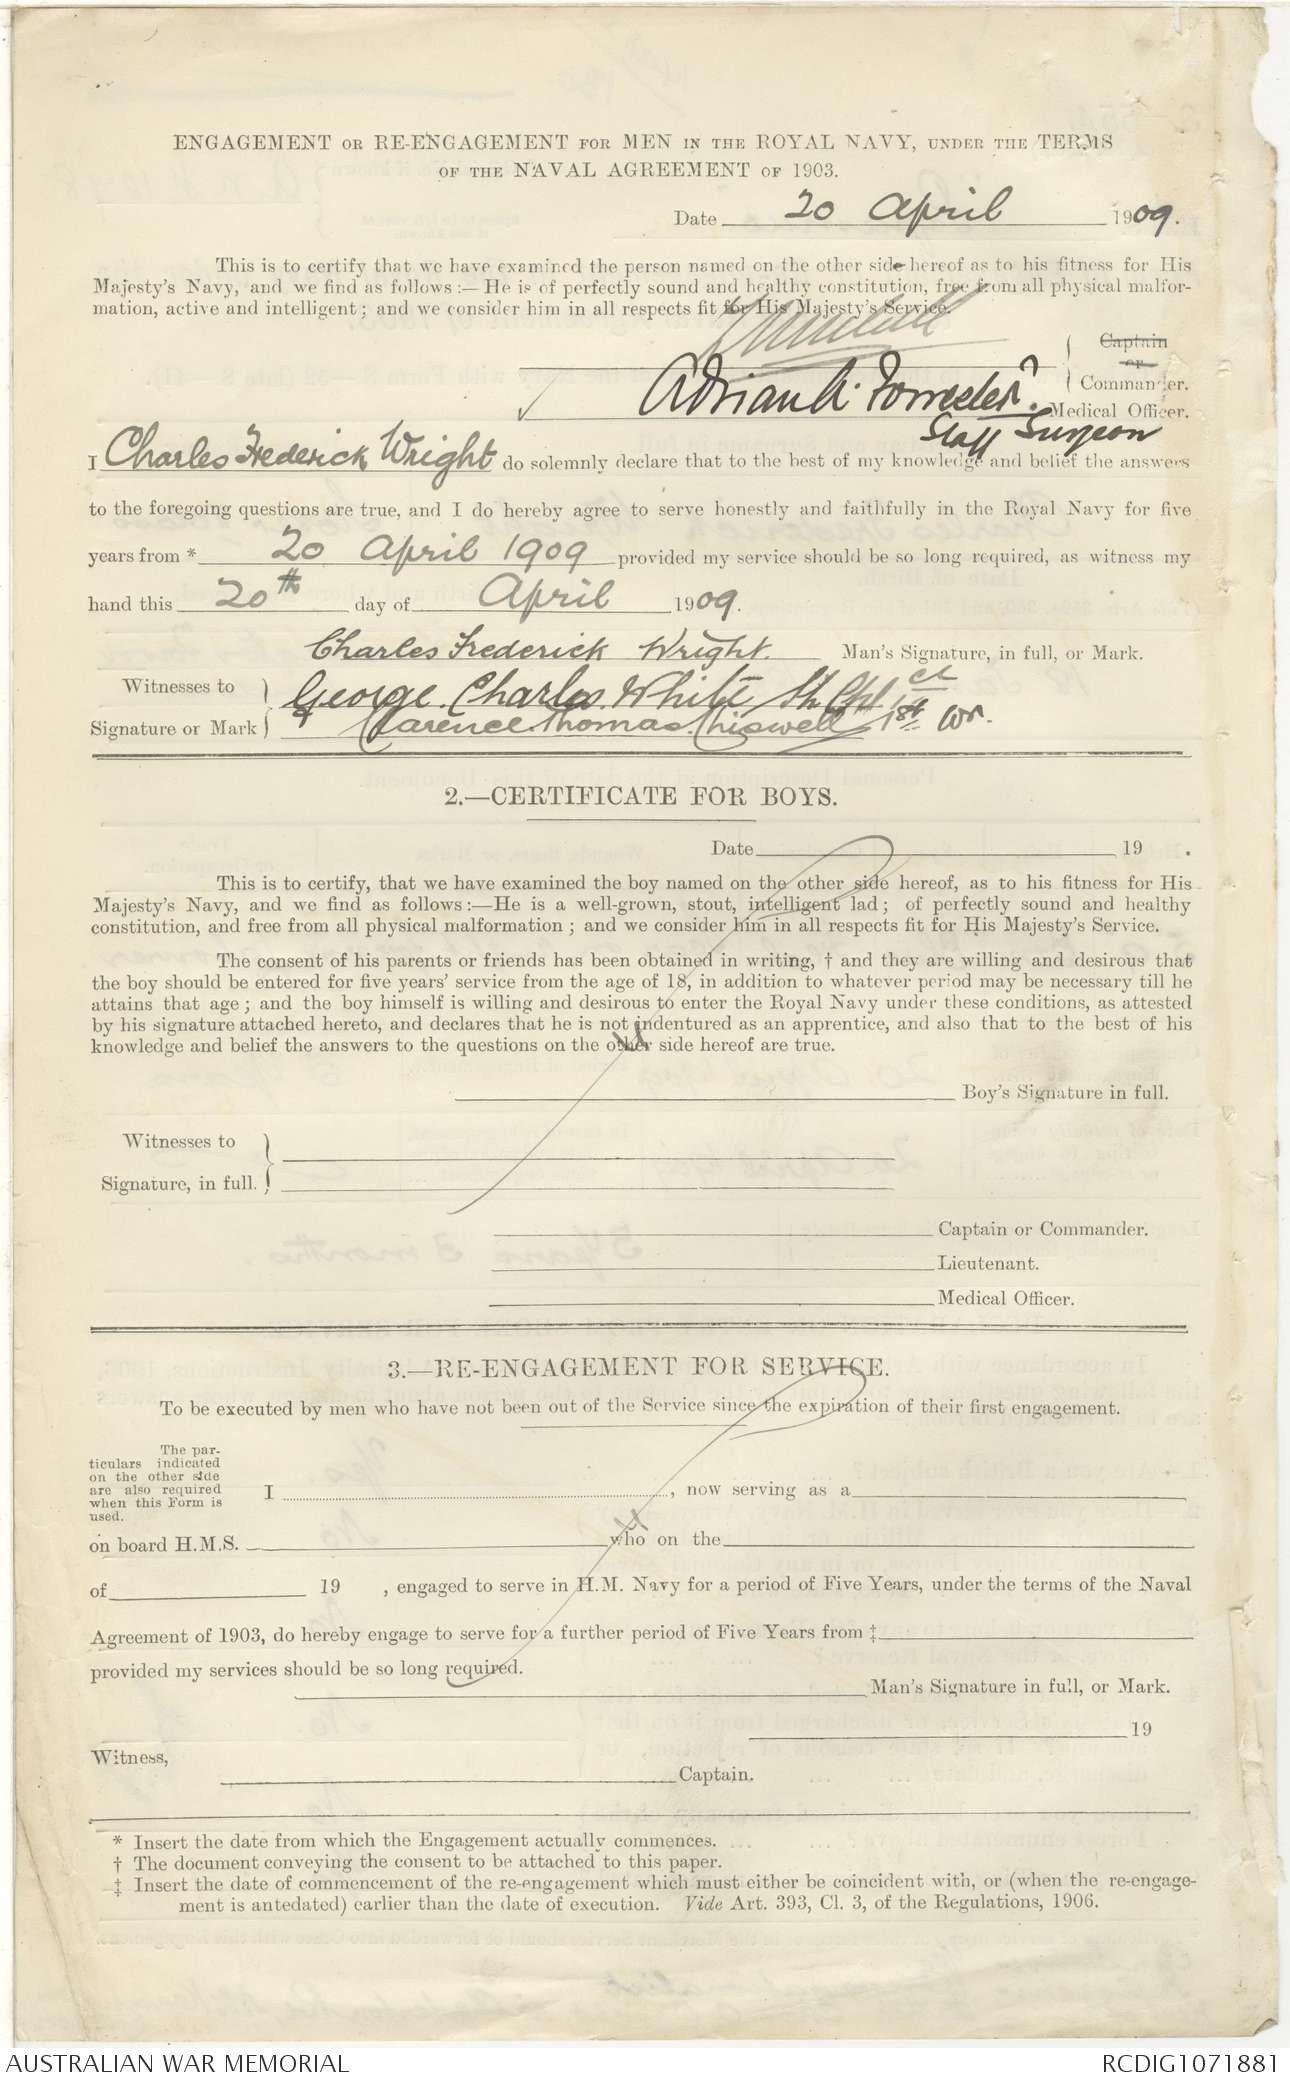 ENGAGEMENT OR RE-ENGAGEMENT FOR MEN IN THE ROYAL NAVY, UNDER THE TERMS
OF THE NAVAL AGREEMENT OF 1903.
Date 20 April 1909.
This is to certify that we have examined the person named on the other side hereof as to his fitness for His
Majesty's Navy, and we find as follows :— He is of perfectly sound and healthy constitution, free from all physical malfor-
mation, active and intelligent ; and we consider him in all respects fit for His Majesty's Service.
Captain
or
Commander.
Adrian A. Forrester. Medical Officer.
Staff Surgeon
I Charles Frederick Wright do solemnly declare that to the best of my knowledge and belief the answers
to the foregoing questions are true, and I do hereby agree to serve honestly and faithfully in the Royal Navy for five
years from * 20 April 1909 provided my service should be so long required, as witness my
hand this 20th day of April 1909.
Charles Frederick Wright. Man's Signature, in full, or Mark.
Witnesses to
George. Charles. White
Signature or Mark
Clarence. Thomas. Chiswell 1st Wr.
2.—CERTIFICATE FOR BOYS.
Date 19 .
This is to certify, that we have examined the boy named on the other side hereof, as to his fitness for His
Majesty's Navy, and we find as follows :—He is a well-grown, stout, intelligent lad ; of perfectly sound and healthy
constitution, and free from all physical malformation ; and we consider him in all respects fit for His Majesty's Service.
The consent of his parents or friends has been obtained in writing, † and they are willing and desirous that
the boy should be entered for five years' service from the age of 18, in addition to whatever period may be necessary till he
attains that age ; and the boy himself is willing and desirous to enter the Royal Navy under these conditions, as attested
by his signature attached hereto, and declares that he is not indentured as an apprentice, and also that to the best of his
knowledge and belief the answers to the questions on the other side hereof are true.
Boy's Signature in full.
Witnesses to
Signature, in full.
Captain or Commander.
Lieutenant.
Medical Officer.
3.—RE-ENGAGEMENT FOR SERVICE.
To be executed by men who have not been out of the Service since the expiration of their first engagement.
The par-
ticulars indicated
on the other side
are also required
when this Form is
used.
I , now serving as a
on board H.M.S. who on the
of 19 , engaged to serve in H.M. Navy for a period of Five Years, under the terms of the Naval
Agreement of 1903, do hereby engage to serve for a further period of Five Years from ‡
provided my services should be so long required.
Man's Signature in full, or Mark.
19
Witness,
Captain.
* Insert the date from which the Engagement actually commences.
† The document conveying the consent to be attached to this paper.
‡ Insert the date of commencement of the re-engagement which must either be coincident with, or (when the re-engage-
ment is antedated) earlier than the date of execution. Vide Art. 393, Cl. 3, of the Regulations, 1906.
AUSTRALIAN WAR MEMORIAL
RCDIG1071881